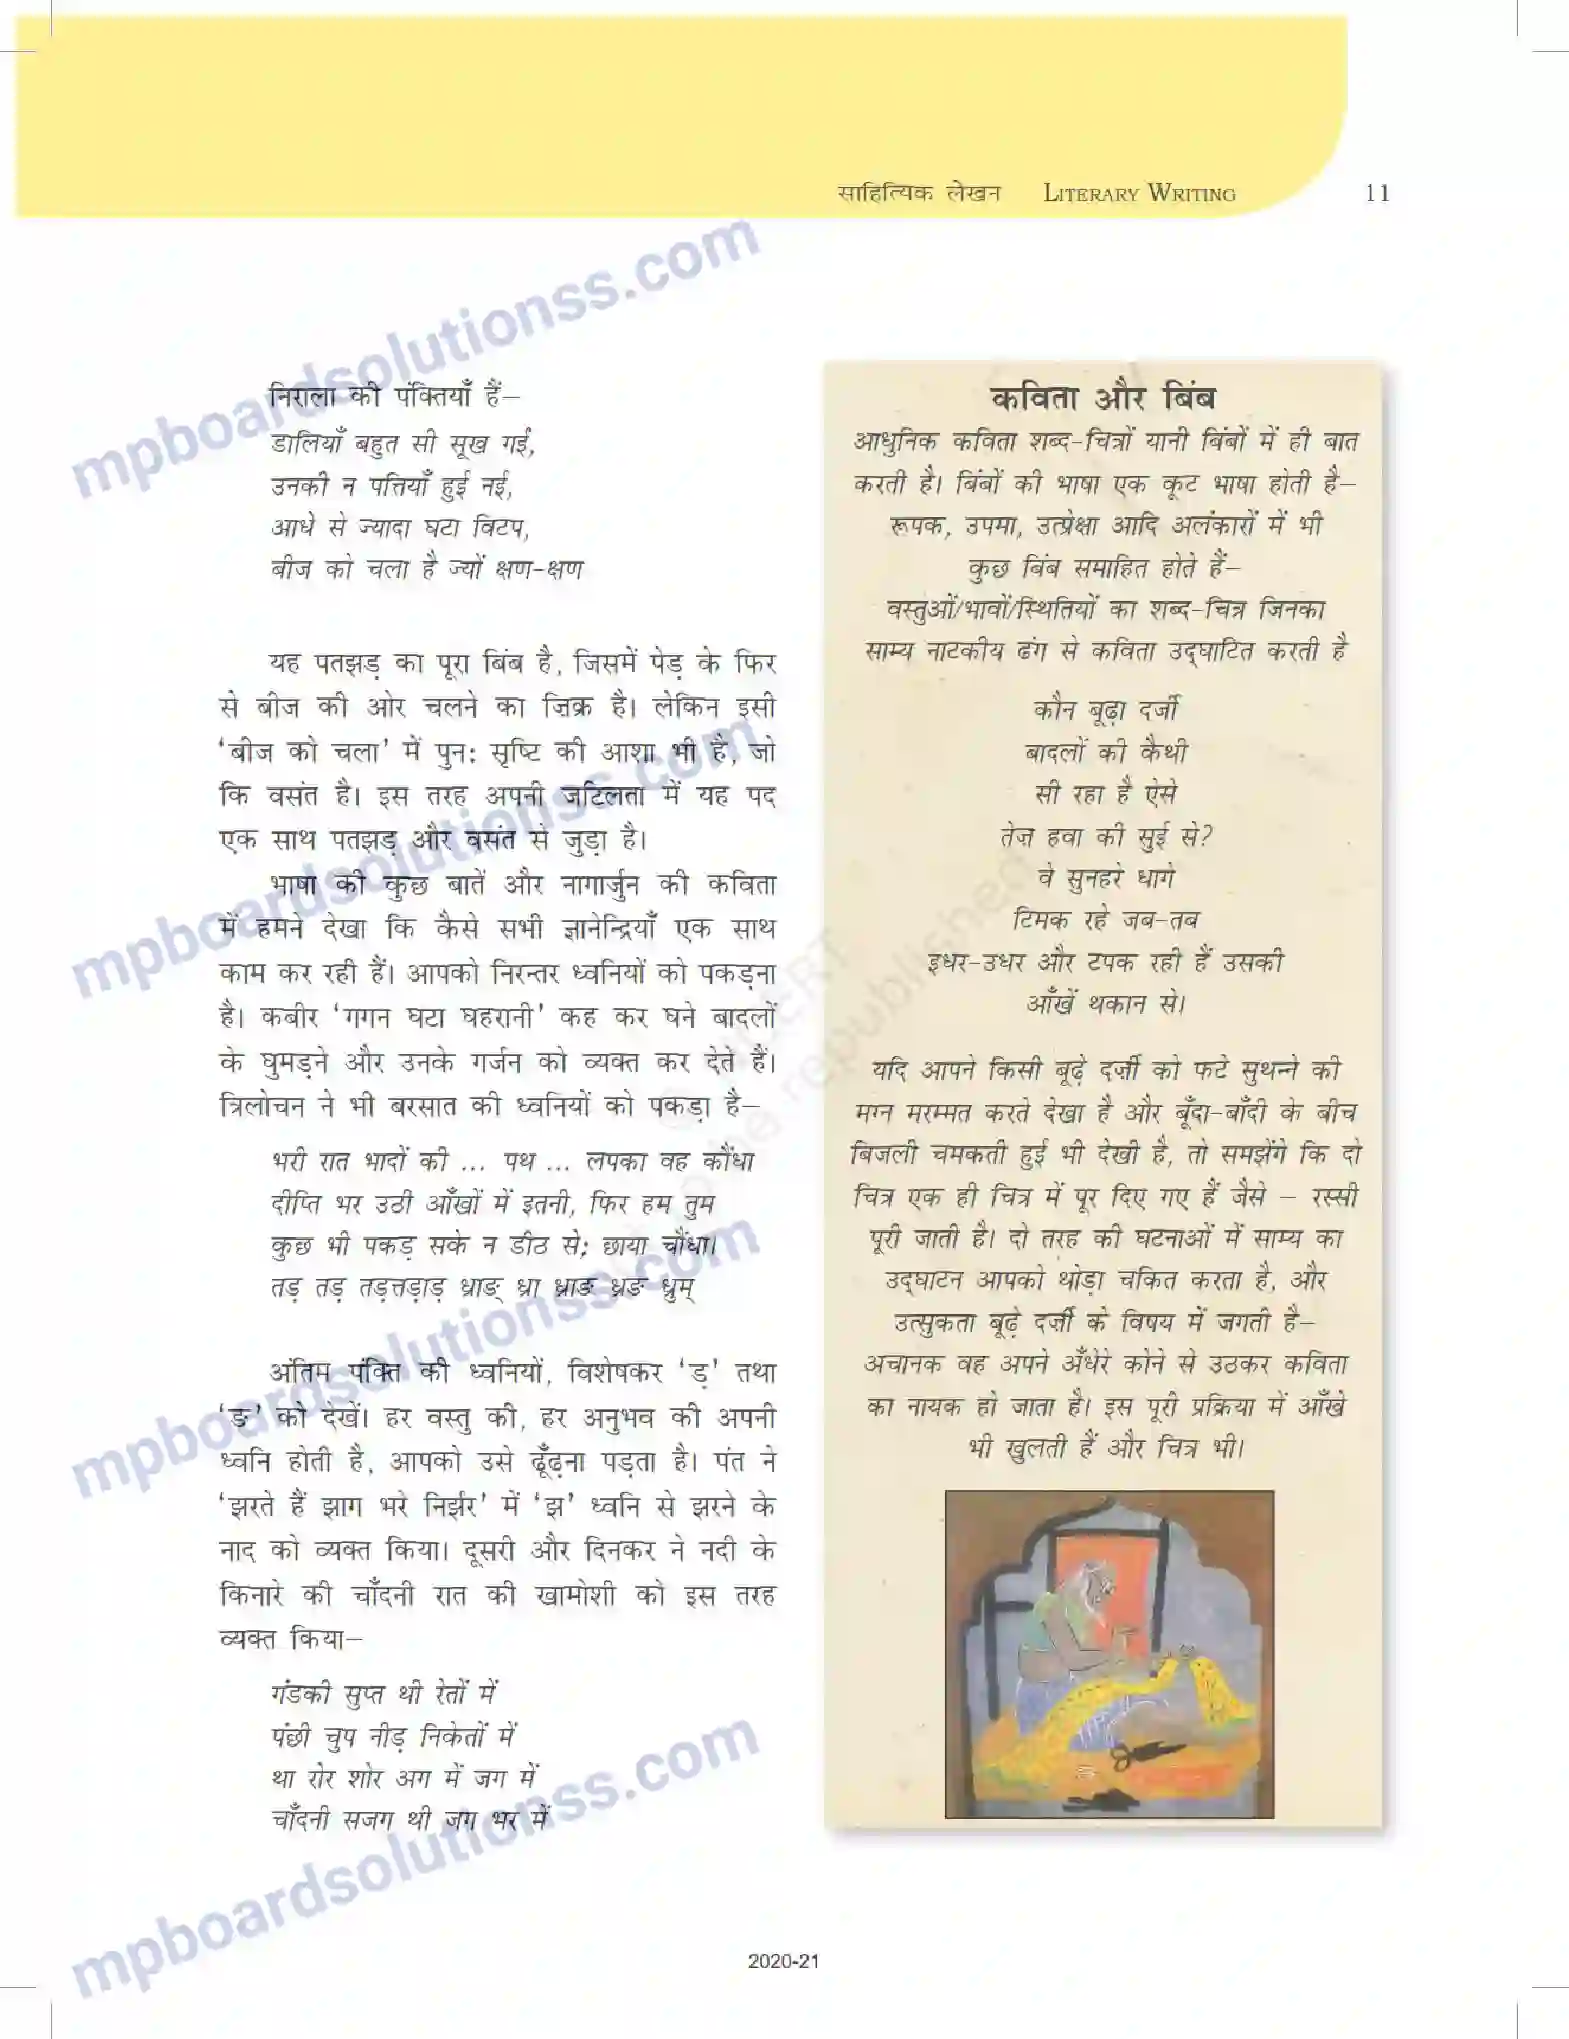 साहित्यिक लेखन LITERARY WRITING 11
निराला की पंक्तियाँ हैं–
डालियाँ बहुत सी सूख गईं,
उनकी न पत्तियाँ हुई नई,
आधे से ज्यादा घटा विटप,
बीज को चला है ज्यों क्षण-क्षण
यह पतझड़ का पूरा बिंब है, जिसमें पेड़ के फिर
से बीज की ओर चलने का ज़िक्र है। लेकिन इसी
‘बीज को चला’ में पुन: सृष्टि की आशा भी है, जो
कि वसंत है। इस तरह अपनी जटिलता में यह पद
एक साथ पतझड़ और वसंत से जुड़ा है।
भाषा की कुछ बातें और नागार्जुन की कविता
में हमने देखा कि कैसे सभी ज्ञानेन्द्रियाँ एक साथ
काम कर रही हैं। आपको निरन्तर ध्वनियों को पकड़ना
है। कबीर ‘गगन घटा घहरानी’ कह कर घने बादलों
के घुमड़ने और उनके गर्जन को व्यक्त कर देते हैं।
त्रिलोचन ने भी बरसात की ध्वनियों को पकड़ा है–
भरी रात भादों की ... पथ ... लपका वह कौंधा
दीप्ति भर उठी आँखों में इतनी, फिर हम तुम
कुछ भी पकड़ सके न डीठ से; छाया चौंधा।
तड़ तड़ तड़त्तड़ाड़ ध्राङ् ध्रा ध्राङ ध्रङ ध्रुम्
अंतिम पंक्ति की ध्वनियों, विशेषकर ‘ड़’ तथा
‘ङ’ को देखें। हर वस्तु की, हर अनुभव की अपनी
ध्वनि होती है, आपको उसे ढूँढ़ना पड़ता है। पंत ने
‘झरते हैं झाग भरे निर्झर’ में ‘झ’ ध्वनि से झरने के
नाद को व्यक्त किया। दूसरी और दिनकर ने नदी के
किनारे की चाँदनी रात की खामोशी को इस तरह
व्यक्त किया–
गंडकी सुप्त थी रेतों में
पंछी चुप नीड़ निकेतों में
था रोर शोर अग में जग में
चाँदनी सजग थी जग भर में
कविता और बिंब
आधुनिक कविता शब्द-चित्रों यानी बिंबों में ही बात
करती है। बिंबों की भाषा एक कूट भाषा होती है–
रूपक, उपमा, उत्प्रेक्षा आदि अलंकारों में भी
कुछ बिंब समाहित होते हैं–
वस्तुओं/भावों/स्थितियों का शब्द-चित्र जिनका
साम्य नाटकीय ढंग से कविता उद्‌घाटित करती है
कौन बूढ़ा दर्ज़ी
बादलों की कैथी
सी रहा है ऐसे
तेज़ हवा की सुई से?
वे सुनहरे धागे
टिमक रहे जब-तब
इधर-उधर और टपक रही हैं उसकी
आँखें थकान से।
यदि आपने किसी बूढ़े दर्ज़ी को फटे सुथन्ने की
मग्न मरम्मत करते देखा है और बूँदा-बाँदी के बीच
बिजली चमकती हुई भी देखी है, तो समझेंगे कि दो
चित्र एक ही चित्र में पूर दिए गए हैं जैसे – रस्सी
पूरी जाती है। दो तरह की घटनाओं में साम्य का
उद्‌घाटन आपको थोड़ा चकित करता है, और
उत्सुकता बूढ़े दर्ज़ी के विषय में जगती है–
अचानक वह अपने अँधेरे कोने से उठकर कविता
का नायक हो जाता है। इस पूरी प्रक्रिया में आँखे
भी खुलती हैं और चित्र भी।
2020-21
mpboardsolutionss.com
mpboardsolutionss.com
mpboardsolutionss.com
mpboardsolutionss.com